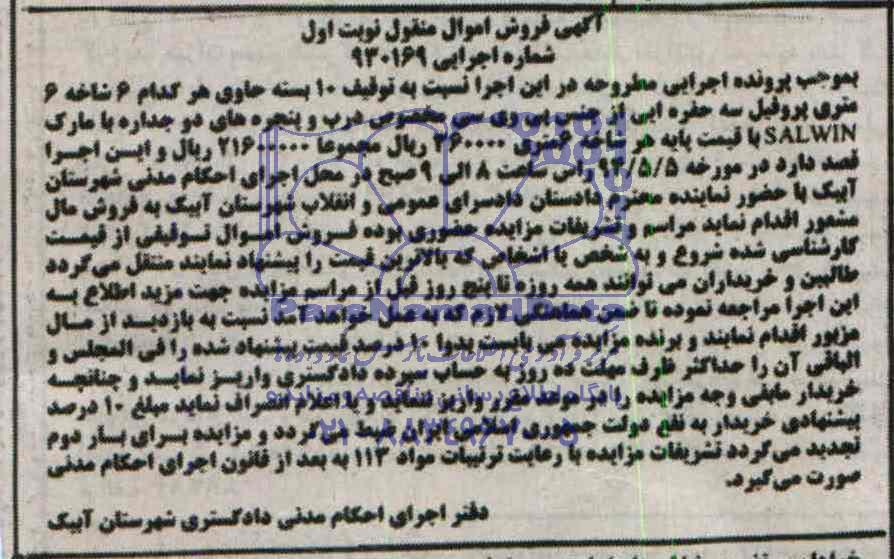 آگهی فروش اموال منقول نوبت اول
شماره اجرایی ۹۳۰۱۶۹
بموجب پرونده اجرایی مطروحه در این اجرا نسبت به توقیف ۱۰ بسته حاوی هر کدام ۶ شاخه ۶
متری پروفیل سه حفره ایی از جنس پی وی سی مخصوص درب و پنجره های دو جداره با مارک
SALWIN با قیمت پایه هر شاخه ۶ متری ۳۶۰۰۰۰ ریال مجموعا ۲۱۶۰۰۰۰۰ ریال و ایـن اجـرا
قصد دارد در مورخه ۵/۵/ راس ساعت ۸ الی ۹ صبح در محل اجرای احکام مدنی شهرستان
آبیک با حضور نماینده محترم دادستان دادسرای عمومی و انقلاب شهرستان آبیک به فروش مال
مشعور اقدام نماید مراسم و تشریفات مزایده حضوری بوده فـروش امـوال تـوقیفی از قیمـت
کارشناسی شده شروع و به شخص یا اشخاص که بالاترین قیمت را پیشنهاد نمایند منتقل می گردد
طالبین و خریداران می توانند همه روزه تا پنج روز قبل از مراسم مزایده جهت مزید اطلاع بـه
این اجرا مراجعه نموده تا ضمن هماهنگی لازم که به عمل خواهد آمد نسبت به بازدیـد از مـال
مزبور اقدام نمایند و برنده مزایده می بایست بدوا ۱۰ درصد قیمت پیشنهاد شده را فی المجلس و
الباقی آن را حداکثر ظرف مهلت ده روز به حساب سپرده دادگستری واریـز نمایـد و چنانچـه
خریدار مابقی وجه مزایده را در موعد مقرر واریز ننماید و یا اعلام انصراف نماید مبلغ ۱۰ درصد
پیشنهادی خریدار به نفع دولت جمهوری اسلامی ایران ضبط می گردد و مزایده بـرای بـار دوم
تجدید می گردد تشریفات مزایده با رعایت ترتیبات مواد ۱۱۳ به بعد از قانون اجرای احکام مدنی
صورت می گیرد.
دفتر اجرای احکام مدنی دادگستری شهرستان آبیک
ParsNamadData
پایگاه اطلاع رسانی مناقصه و مزایده